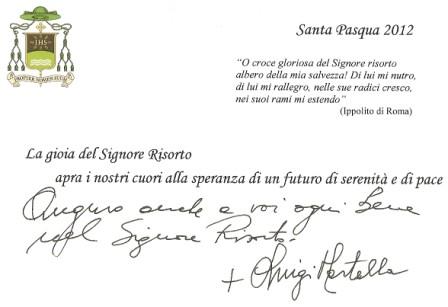 IHS
Santa Pasqua 2012
“O croce gloriosa del Signore risorto
albero della mia salvezza! Di lui mi nutro,
di lui mi rallegro, nelle sue radici cresco,
nei suoi rami mi estendo”
(Ippolito di Roma)
La gioia del Signore Risorto
apra i nostri cuori alla speranza di un futuro di serenità e di pace
Auguro anche a voi ogni bene
nel Signore Risorto.
+ Luigi Martella